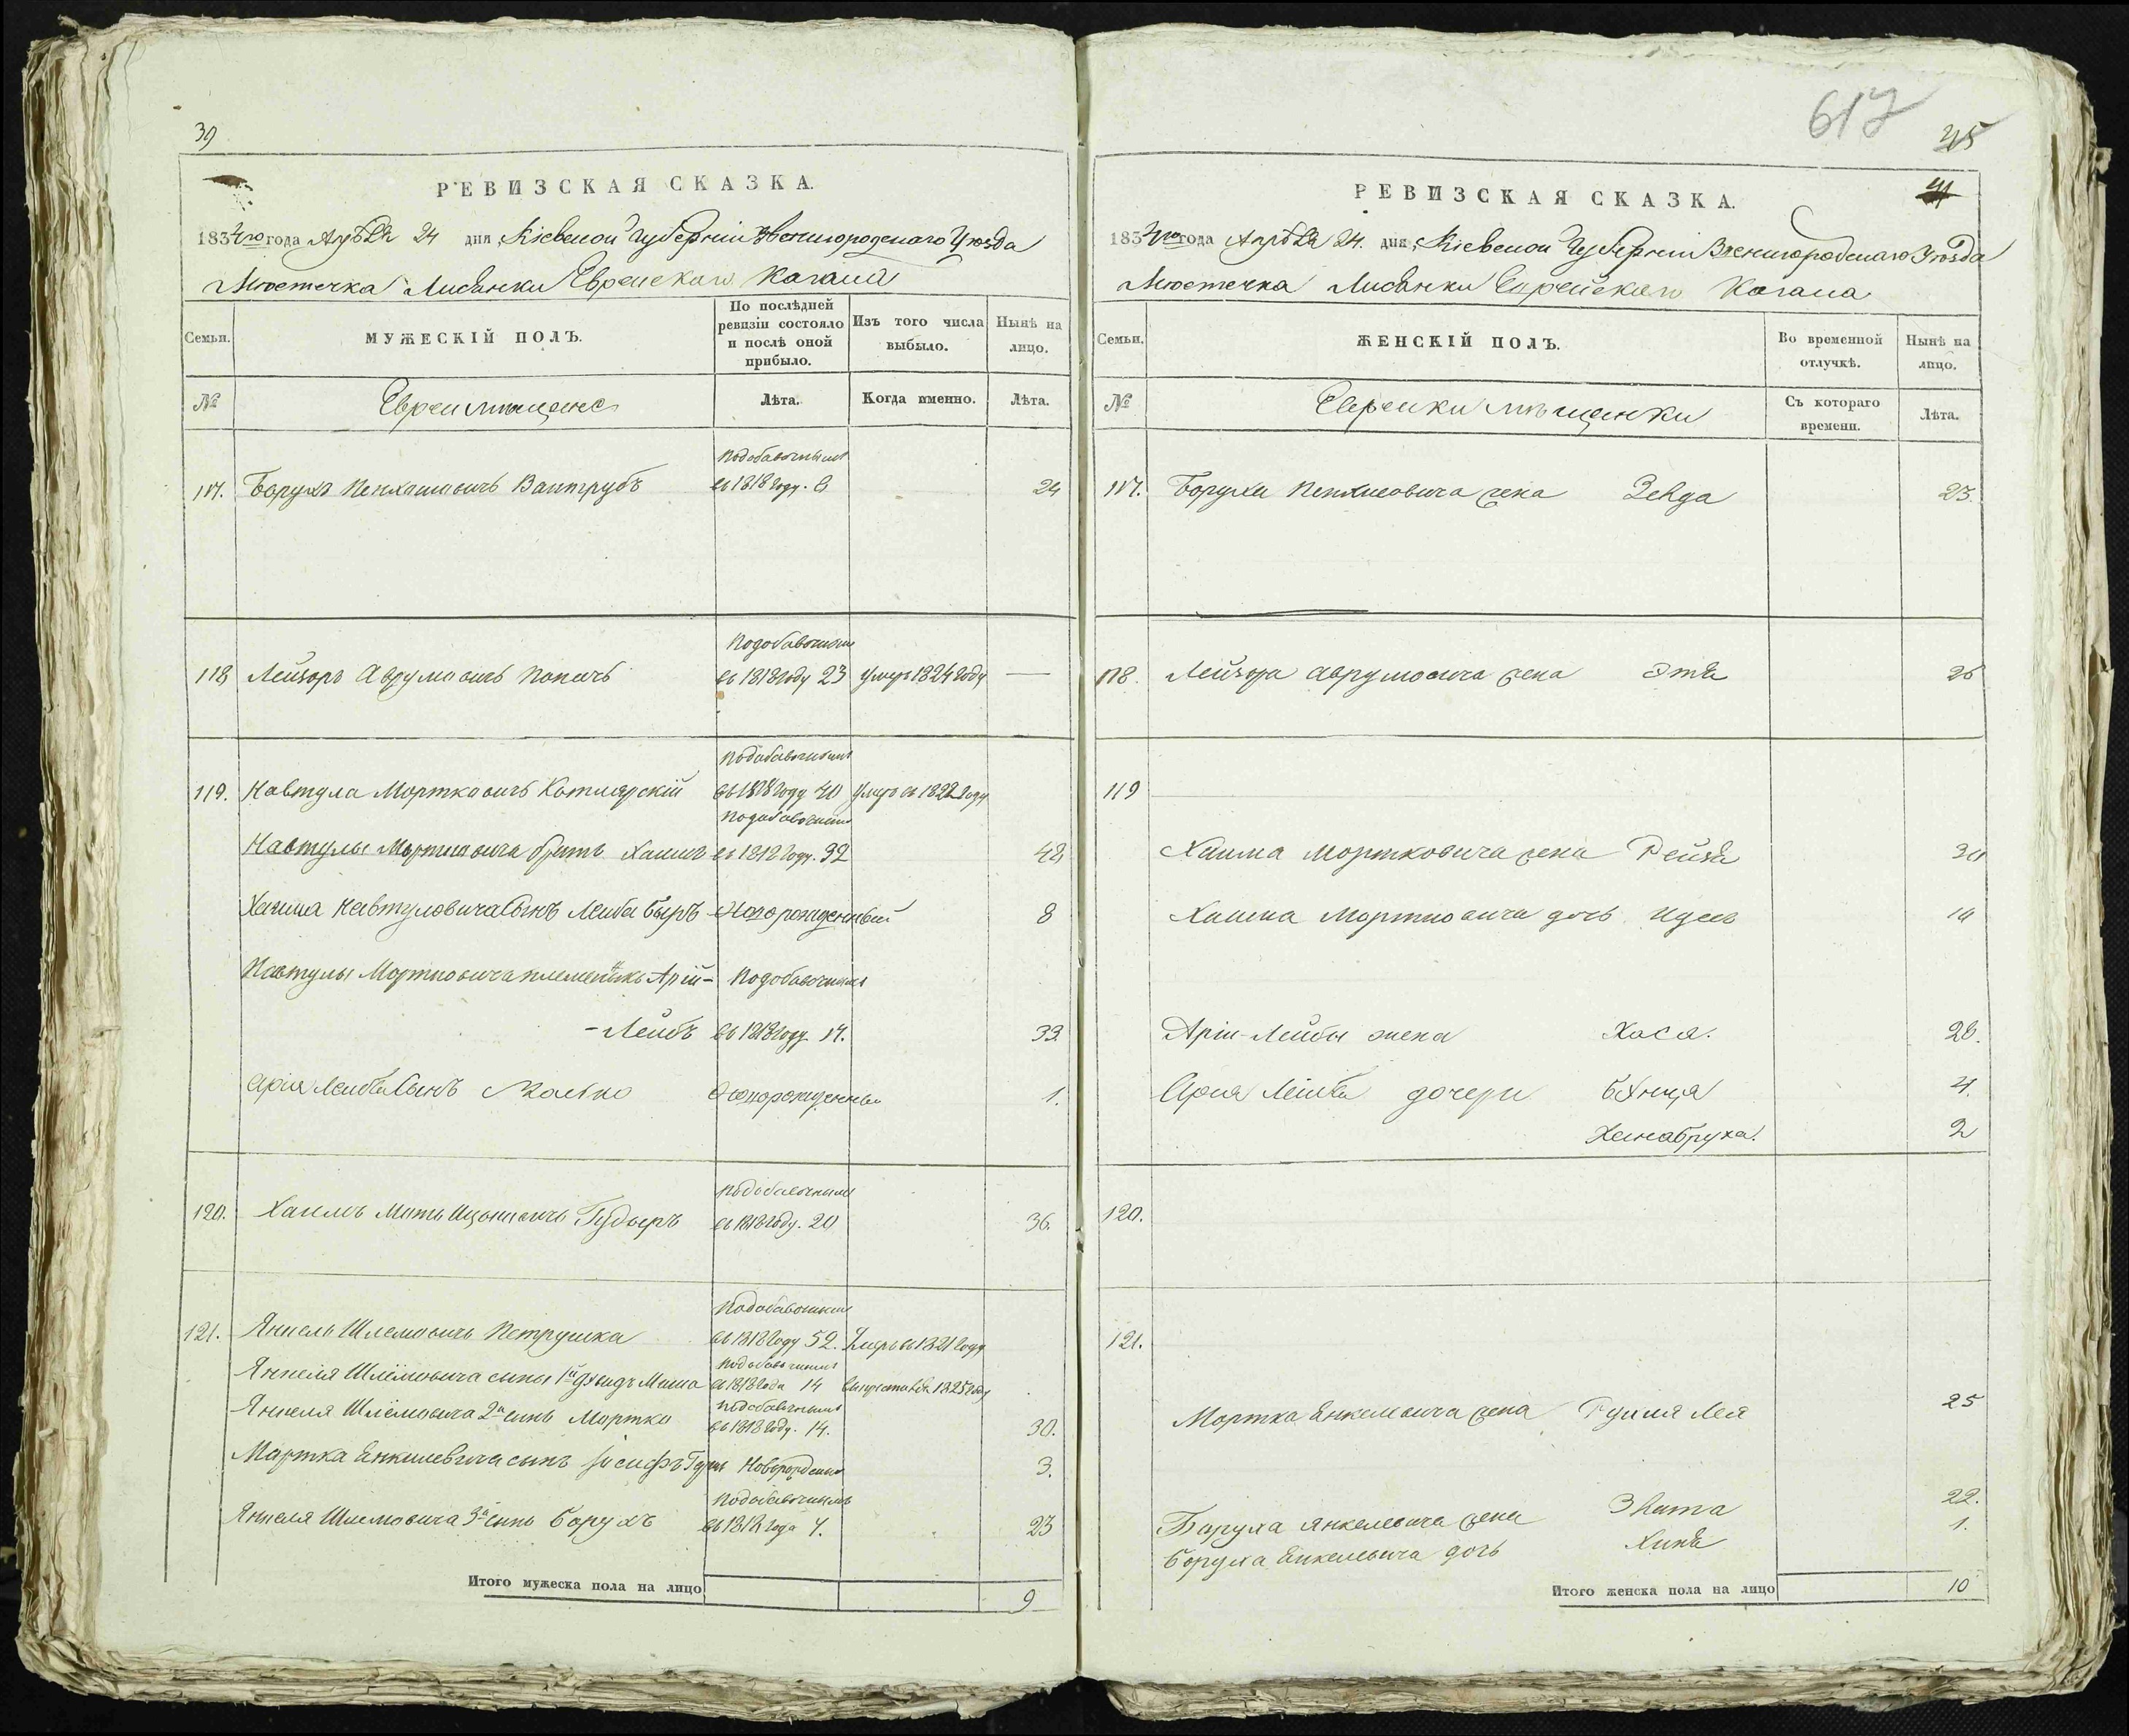 39
РЕВИЗСКАЯ СКАЗКА.
1834го года Апреля 24 дня, Кіевской Губерніи Звенигородскаго Уѣзда
Мѣстечка Лисянки Еврейскаго Кагала
Семьи.
МУЖЕСКІЙ ПОЛЪ.
По послѣдней ревизіи состояло и послѣ оной прибыло.
Изъ того числа выбыло.
Нынѣ на лицо.
№
Евреи мѣщане
Лѣта.
Когда именно.
Лѣта.
подобавочнымъ
117. Борухъ Пенхасовичъ Вантрубъ въ 1818 году. 8 24
Подобавочнымъ
118 Лейзоръ Аврумовичъ Копичъ въ 1818 году 23 умеръ 1824 году —
подобавочнымъ
119. Навтула Мортковичъ Котлярскій въ 1818 году 40 умеръ въ 1822 году
подобавочнымъ
Навтулы Мортковича братъ Хаимъ въ 1818 году. 32 48
Хаима Навтуловича сынъ Лейба Беръ новорожденный 8
Навтулы Мортковича племенникъ Арій- подобавочнымъ
-Лейбъ въ 1818 году 17. 33
Арія Лейба сынъ новорожденный 1.
подобавочнымъ
120. Хаимъ въ 1818 году. 20 36.
подобавочнымъ
121. Янкель Шлемовичъ Петрушка въ 1818 году 52. Умеръ въ 1821 году
подобавочнымъ
Янкеля Шлемовича сыны 1й въ 1818 года 14 1825 году
подобавочнымъ
Янкеля Шлемовича 2й сынъ Мортко въ 1818 году. 14. 30.
Мортка Енкелевича сынъ Іосифъ новорожденый 3.
подобавочнымъ
Янкеля Шлемовича 3й сынъ Борухъ въ 1818 года 7. 23
Итого мужеска пола на лицо 9
617
45
41
РЕВИЗСКАЯ СКАЗКА.
1834го года Апреля 24. дня, Кіевской Губерніи Звенигородскаго Уѣзда
Мѣстечка Лисянки Еврейскаго Кагала
Семьи.
ЖЕНСКІЙ ПОЛЪ.
Во временной отлучкѣ.
Нынѣ на лицо.
№
Еврейки мѣщанки
Съ котораго времени.
Лѣта.
117. Боруха Пенхасовича жена Зелда 23.
118. Лейзора Аврумовича жена Этя 26
119
Хаима Мортковича жена Рейзя 30
Хаима Мортковича дочь Идесъ 14
Арія-Лейбы жена Хася. 26.
Арія Лейба дочери Бунця 4.
Хенабруха. 2
120.
121.
Мортка Енкелевича жена Лея 25
Боруха Янкелевича жена Злата 22.
Боруха Енкелевича дочь Хиня 1.
Итого женска пола на лицо 10